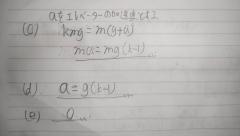 aをエレベーターの加速度とする
(c) kmg = m(g+a)
ma = mg(k-1)
(d) a = g(k-1)
(e) 0